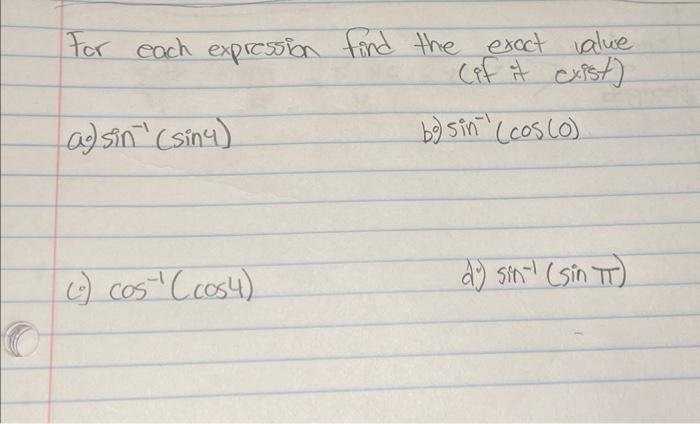 For each expression find the exact value
(if it exist)
a.) sin⁻¹ (sin4)
b.) sin⁻¹ (cos(0)
c.) cos⁻¹ (cos4)
d.) sin⁻¹ (sin π)